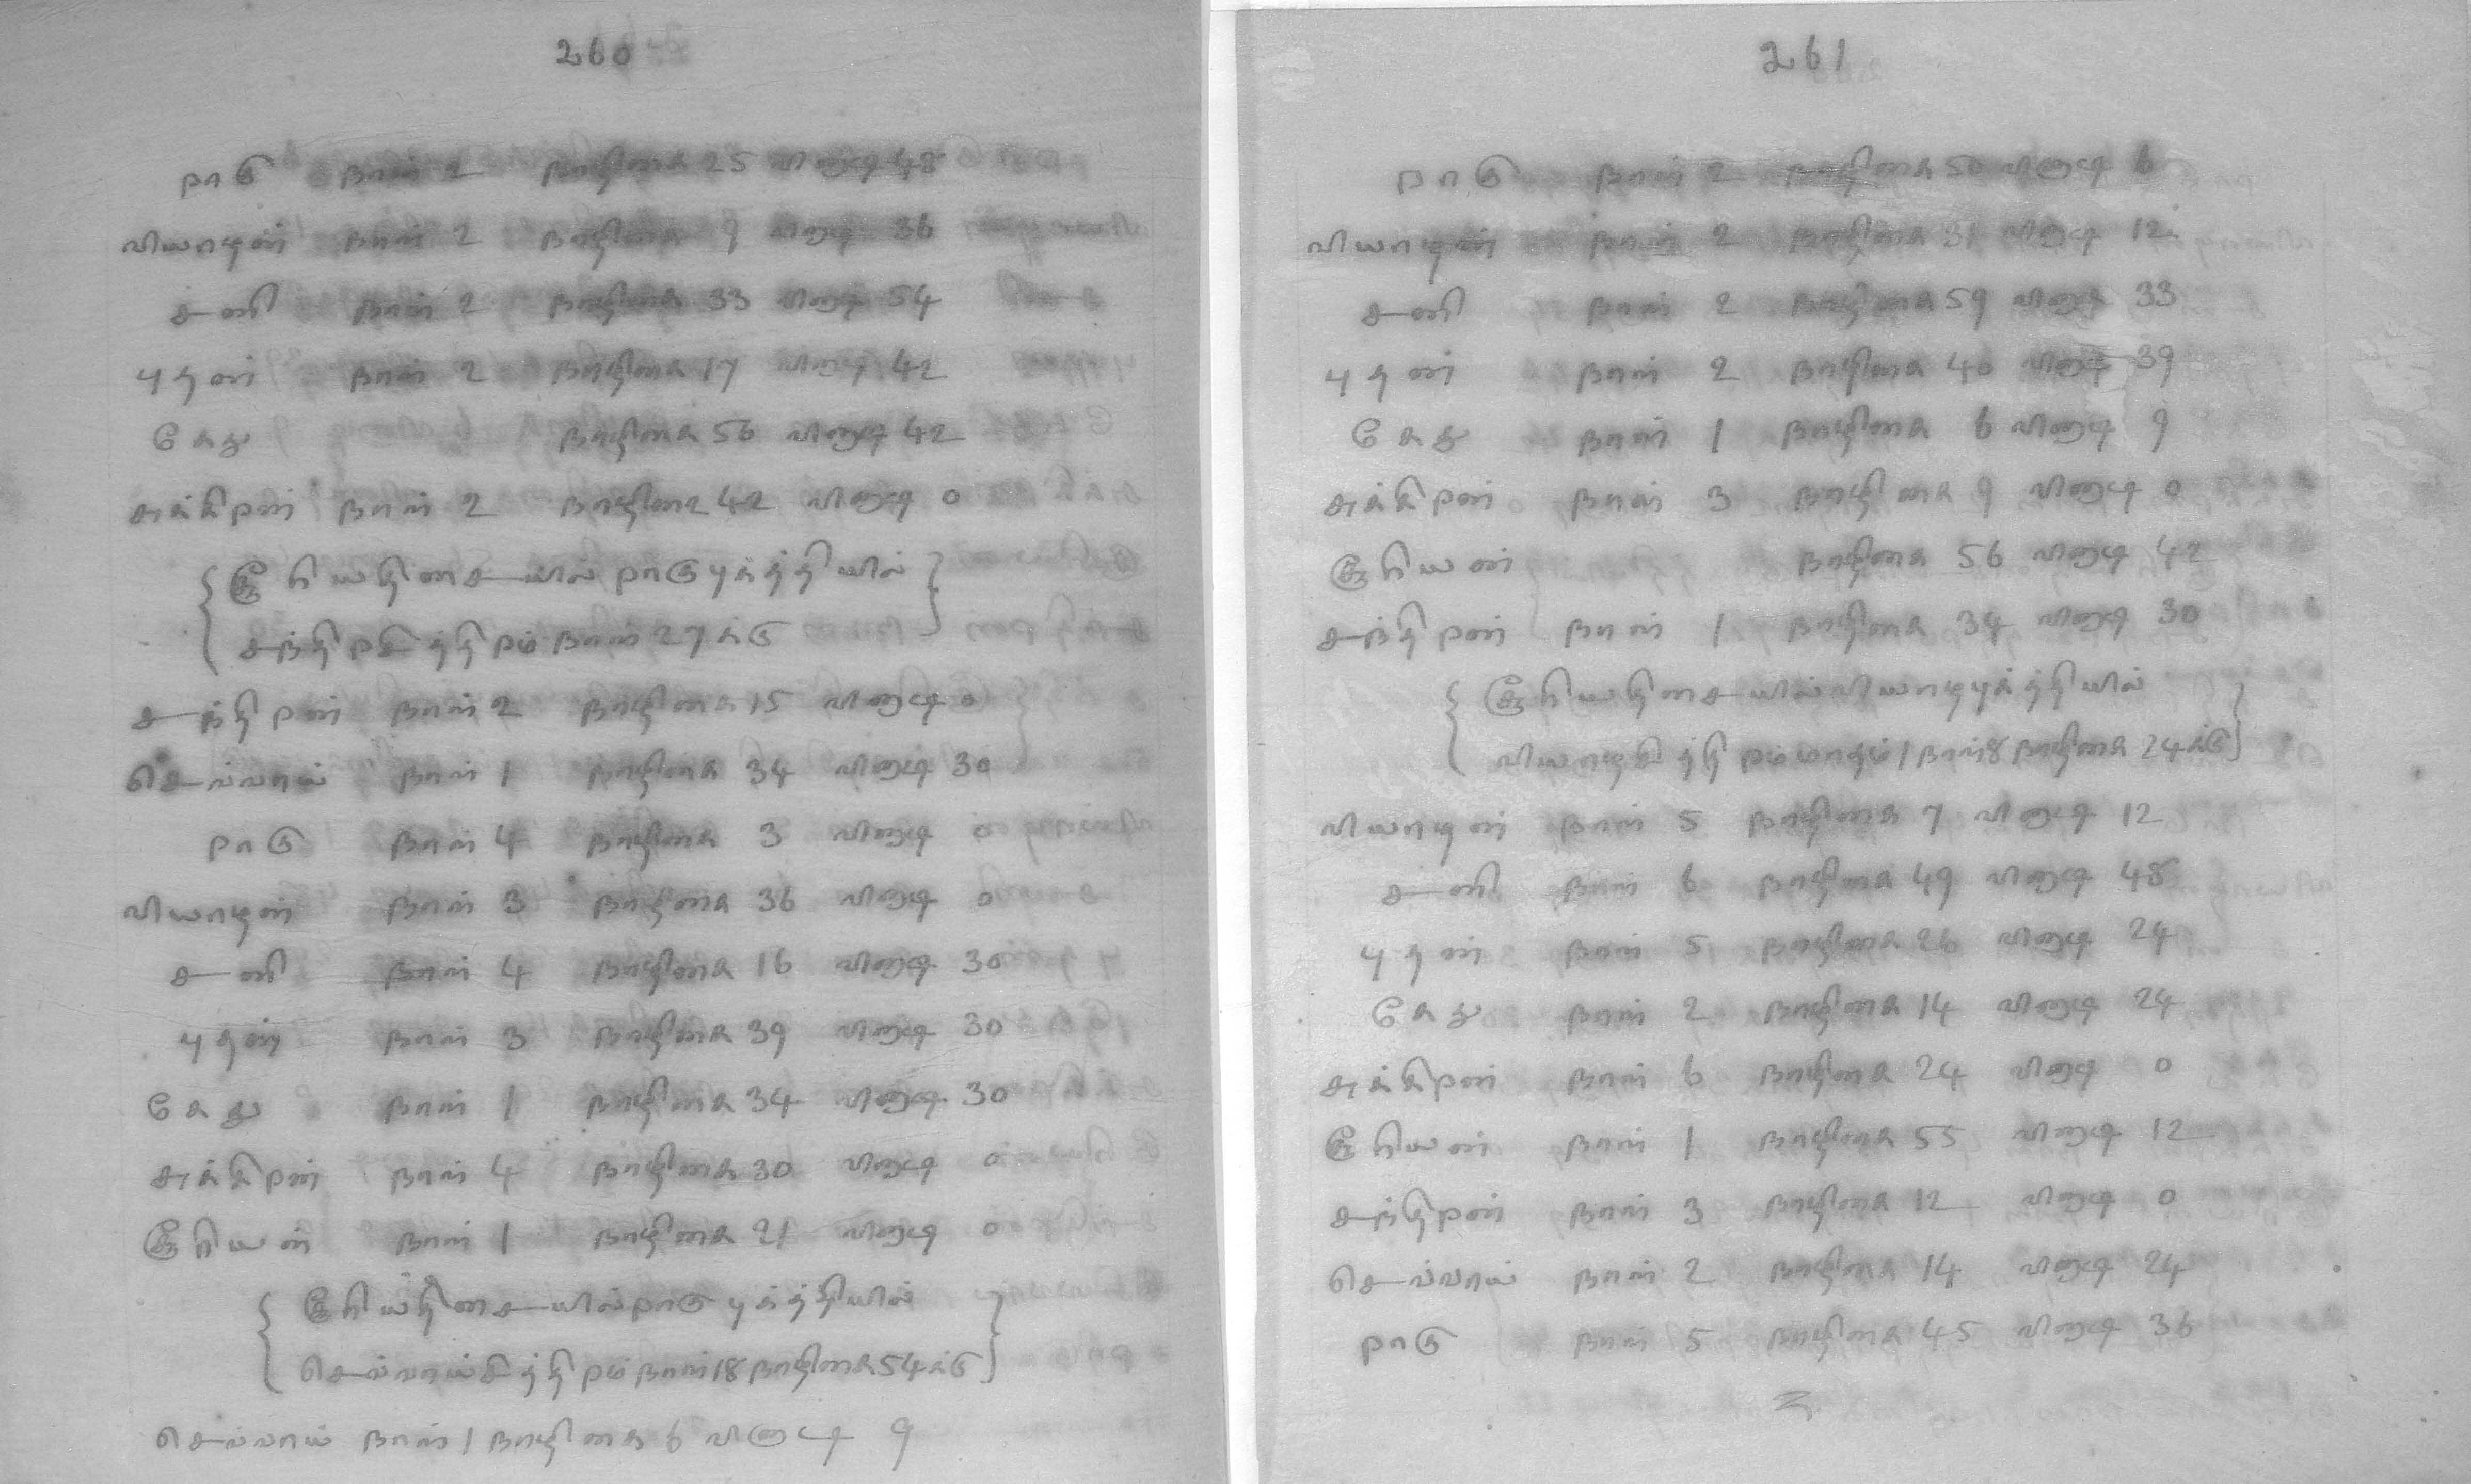 260
ராகு நாள் 2 நாழிகை 25 விநாடி 48
வியாழன் நாள் 2 நாழிகை 9 விநாடி 36
சனி நாள் 2 நாழிகை 33 விநாடி 54
புதன் நாள் 2 நாழிகை 17 விநாடி 42
கேது நாழிகை 56 விநாடி 42
சுக்கிரன் நாள் 2 நாழிகை 42 விநாடி 0
{ சூரியதிசையில் ராகுபுத்தியில் }
{ சந்திரசித்திரம் நாள் 27க்கு }
சந்திரன் நாள் 2 நாழிகை 15 விநாடி 0
செவ்வாய் நாள் 1 நாழிகை 34 விநாடி 30
ராகு நாள் 4 நாழிகை 3 விநாடி 0
வியாழன் நாள் 3 நாழிகை 36 விநாடி 0
சனி நாள் 4 நாழிகை 16 விநாடி 30
புதன் நாள் 3 நாழிகை 39 விநாடி 30
கேது நாள் 1 நாழிகை 34 விநாடி 30
சுக்கிரன் நாள் 4 நாழிகை 30 விநாடி 0
சூரியன் நாள் 1 நாழிகை 21 விநாடி 0
{ சூரியதிசையில்ராகு புத்தியில் }
{ செவ்வாய்சித்திரம் நாள்18 நாழிகை54க்கு }
செவ்வாய் நாள் 1 நாழிகை 6 விநாடி 9
261
ராகு நாள் 2 நாழிகை 50 விநாடி 6
வியாழன் நாள் 2 நாழிகை 31 விநாடி 12
சனி நாள் 2 நாழிகை 59 விநாடி 33
புதன் நாள் 2 நாழிகை 40 விநாடி 39
கேது நாள் 1 நாழிகை 6 விநாடி 9
சுக்கிரன் நாள் 3 நாழிகை 9 விநாடி 0
சூரியன் நாழிகை 56 விநாடி 42
சந்திரன் நாள் 1 நாழிகை 34 விநாடி 30
{ சூரியதிசையில்வியாழபுத்தியில் }
{ வியாழசித்திரம்மாதம்1 நாள்8 நாழிகை 24க்கு }
வியாழன் நாள் 5 நாழிகை 7 விநாடி 12
சனி நாள் 6 நாழிகை 49 விநாடி 48
புதன் நாள் 5 நாழிகை 26 விநாடி 24
கேது நாள் 2 நாழிகை 14 விநாடி 24
சுக்கிரன் நாள் 6 நாழிகை 24 விநாடி 0
சூரியன் நாள் 1 நாழிகை 55 விநாடி 12
சந்திரன் நாள் 3 நாழிகை 12 விநாடி 0
செவ்வாய் நாள் 2 நாழிகை 14 விநாடி 24
ராகு நாள் 5 நாழிகை 45 விநாடி 36